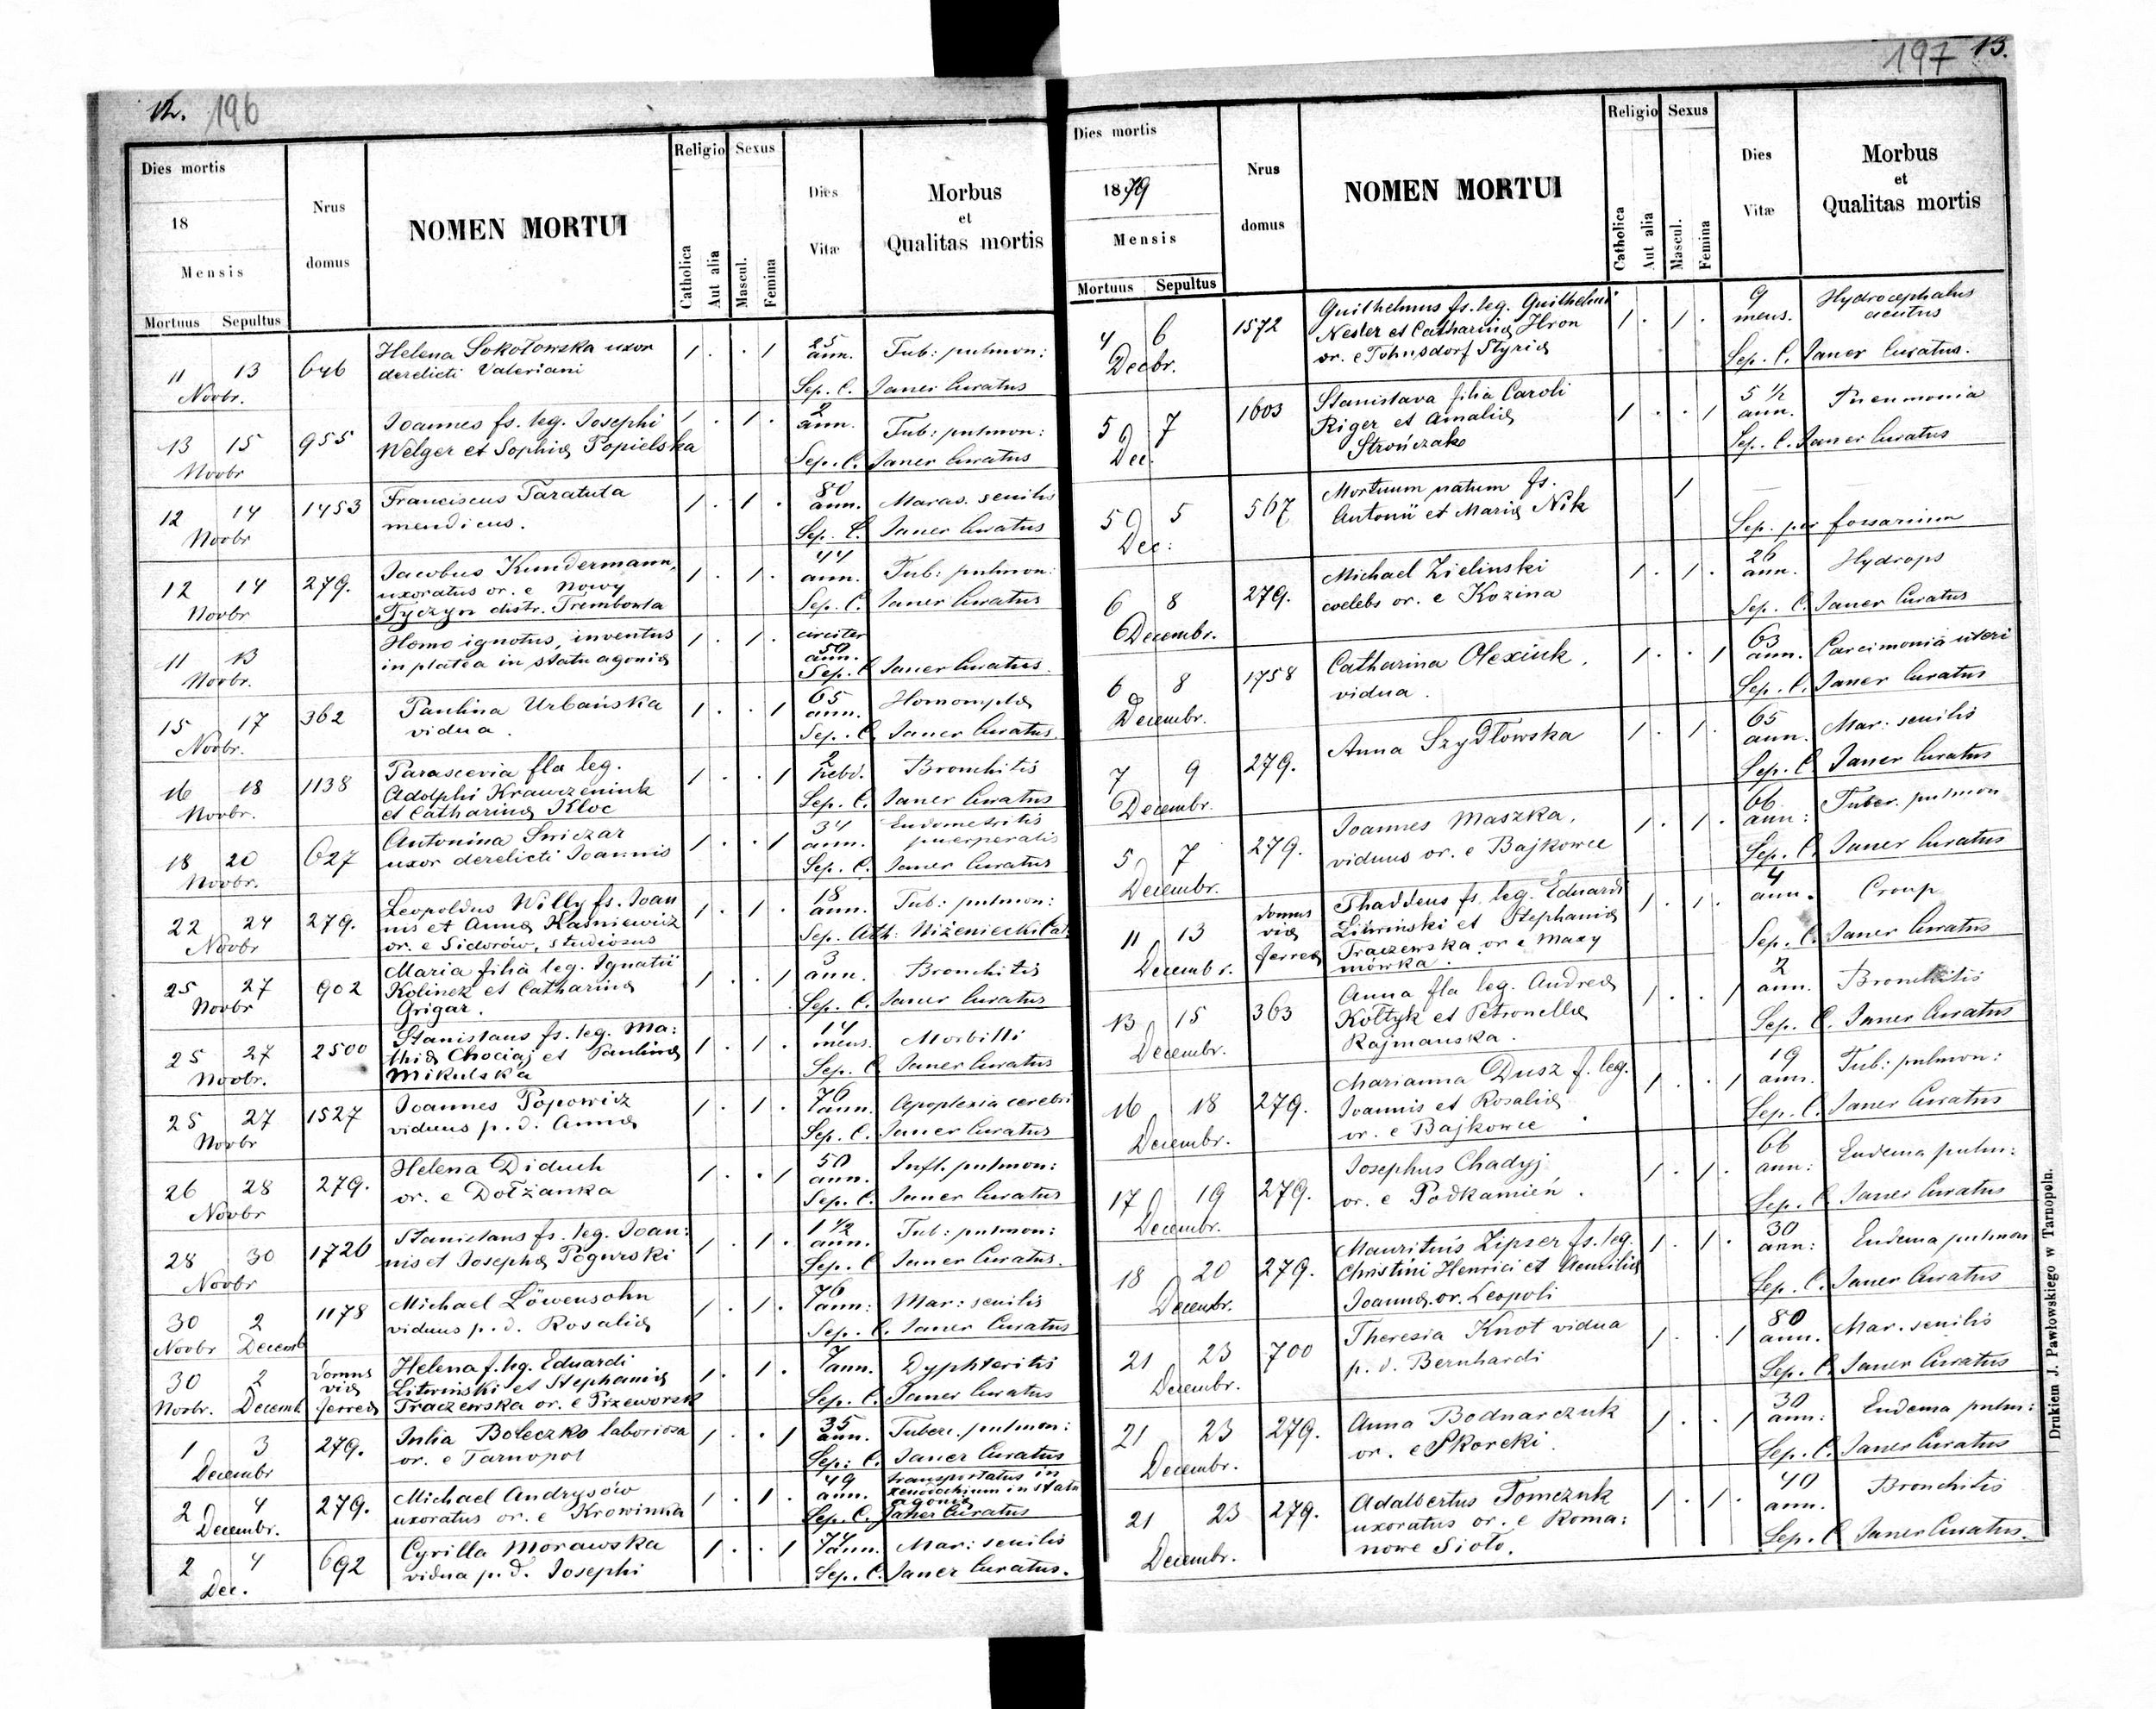 12. 196
Dies mortis
18
Mensis
Mortuus Sepultus
Nrus domus
NOMEN MORTUI
Religio Sexus
Catholica Aut alia Mascul. Femina
Dies Vitæ
Morbus et Qualitas mortis
11 13 Novbr. 646 Helena Sokołowska uxor / . . / 25 ann. Tub: pulmon:
derelicti Valeriani Sep. C. Janer Curatus
13 15 Novbr 955 Joannes fs. leg. Josephi / . / . 2 ann. Tub: pulmon:
Welger et Sophiæ Popielska Sep. C. Janer Curatus
12 14 Novbr 1453 Franciscus Taratuta / . / . 80 ann. Maras. senilis
mendicus. Sep. C. Janer Curatus
12 14 Novbr 279. Jacobus Kundermann, / . / . 44 ann. Tub: pulmon:
uxoratus or. e Nowy Sep. C. Janer Curatus
Tyczyn distr. Trembowla
11 13 Novbr. Homo ignotus, inventus / . / . circiter 50 ann.
in platea in statu agoniæ Sep. C Janer Curatus.
15 17 Novbr. 362 Paulina Urbańska / . . / 65 ann.
vidua. Sep. C. Janer Curatus.
16 18 Novbr. 1138 Parascevia fla leg. / . . / 2 hebd. Bronchitis
Adolphi Krawczeniuk Sep. C. Janer Curatus
et Catharinæ Kloc
18 20 Novbr. 627 Antonina Swiczar / . . / 34 ann. Endometritis puerperalis
uxor derelicti Joannis Sep. C. Janer Curatus
22 24 Novbr 279. Leopoldus Willy fs. Joan / . / . 18 ann. Tub: pulmon:
nis et Annæ Kaśniewicz Sep. Ath: Niżeniecki Cat.
or. e Sidorów, studiosus
25 27 Novbr 902 Maria filia leg. Ignatii / . . / 3 ann. Bronchitis
Kolinek et Catharinæ Sep. C. Janer Curatus
Grigar.
25 27 Novbr. 2500 Stanislaus fs. leg. Ma: / . / . 14 mens. Morbilli
thiæ Chociaj et Paulinæ Sep. C. Janer Curatus
Mikulska
25 27 Novbr 1527 Joannes Popowicz / . / . 76 ann. Apoplexia cerebri
viduus p. d. Annæ Sep. C. Janer Curatus
26 28 Novbr 279. Helena Diduch / . . / 50 ann. Infl. pulmon:
or. e Dołżanka Sep. C. Janer Curatus
28 30 Novbr 1726 Stanislaus fs. leg. Joan: / . / . 1 1/2 ann. Tub: pulmon:
nis et Josephæ Pogurski Sep. C Janer Curatus.
30 Novbr 2 Decemb 1178 Michael Löwensohn / . / . 76 ann: Mar: senilis
viduus p. d. Rosaliæ Sep. C. Janer Curatus
30 Novbr. 2 Decemb. domus viæ ferreæ Helena f. leg. Eduardi / . / . 7 ann. Dyphteritis
Litwiński et Stephaniæ Sep. C. Janer Curatus
Traczewska or. e Przeworsk
1 3 Decembr 279. Julia Boteczko laboriosa / . . / 35 ann. Tuberc. pulmon:
or. e Tarnopol Sep: C. Janer Curatus
2 4 Decembr. 279. Michael Andrysów / . / . 49 ann. transportatus in xenodochium in statu agoniæ
uxoratus or. e Krowinka Sep. C. Janer Curatus
2 4 Dec. 692 Cyrilla Morawska / . . / 74 ann. Mar: senilis
vidua p. d. Josephi Sep. C. Janer Curatus.
197 13.
Dies mortis
1879
Mensis
Mortuus Sepultus
Nrus domus
NOMEN MORTUI
Religio Sexus
Catholica Aut alia Mascul. Femina
Dies Vitæ
Morbus et Qualitas mortis
4 6 Decbr. 1572 Guilhelmus fs. leg. Guilhelmi / . / . 9 mens. Hydrocephalus acutus
Nesler et Catharinæ Hron
or. e Tohnsdorf Styriæ Sep. C. Janer Curatus.
5 7 Dec. 1603 Stanislava filia Caroli / . . / 5 1/2 ann. Pneumonia
Riger et Amaliæ Sep. C. Janer Curatus
Strończak
5 5 Dec: 567 Mortuum natum fs. /
Antonii et Mariæ Nik Sep. per fossarium
6 8 Decembr. 279. Michael Zielinski / . / . 26 ann. Hydrops
coelebs or. e Kozina Sep. C. Janer Curatus
6 8 Decembr. 1758 Catharina Olexiuk, / . . / 63 ann. Carcimonia uteri
vidua. Sep. C. Janer Curatus
7 9 Decembr. 279. Anna Szydłowska / . / . 65 ann. Mar: senilis
Sep. C Janer Curatus
5 7 Decembr. 279. Joannes Maszka, / . / . 66 ann: Tuber. pulmon
viduus or. e Bajkowce Sep. C. Janer Curatus
11 13 Decembr. domus viæ ferreæ Thaddeus fs. leg. Eduardi / . / . 4 ann. Croup
Litwinski et Stephaniæ Sep. C. Janer Curatus
Traczewska or. e Maxy
mówka.
13 15 Decembr. 363 Anna fla leg. Andreæ / . . / 2 ann. Bronchitis
Kołtyk et Petronellæ Sep. C. Janer Curatus
Rajmanska.
16 18 Decembr. 279. Marianna Dusz f. leg. / . . / 19 ann. Tub: pulmon:
Joannis et Rosaliæ Sep. C. Janer Curatus
or. e Bajkowce
17 19 Decembr. 279. Josephus Chadyj / . / . 66 ann: Eudema pulm:
or. e Podkamień. Sep. C. Janer Curatus
18 20 Decembr. 279. Mauritius Zipser fs. leg. / . / . 30 ann: Eudema pulmon
Christini Henrici et Aemiliæ Sep. C. Janer Curatus
Joannæ. or. Leopoli
21 23 Decembr. 700 Theresia Knot vidua / . . / 80 ann. Mar. senilis
p. d. Bernhardi Sep. C. Janer Curatus
21 23 Decembr. 279. Anna Bodnarczuk / . . / 30 ann: Eudema pulm:
or. e Skoreki. Sep. C. Janer Curatus
21 23 Decembr. 279. Adalbertus Tomczuk / . / . 40 ann. Bronchitis
uxoratus or. e Roma: Sep. C Janer Curatus.
nowe Sioło.
Drukiem J. Pawłowskiego w Tarnopolu.